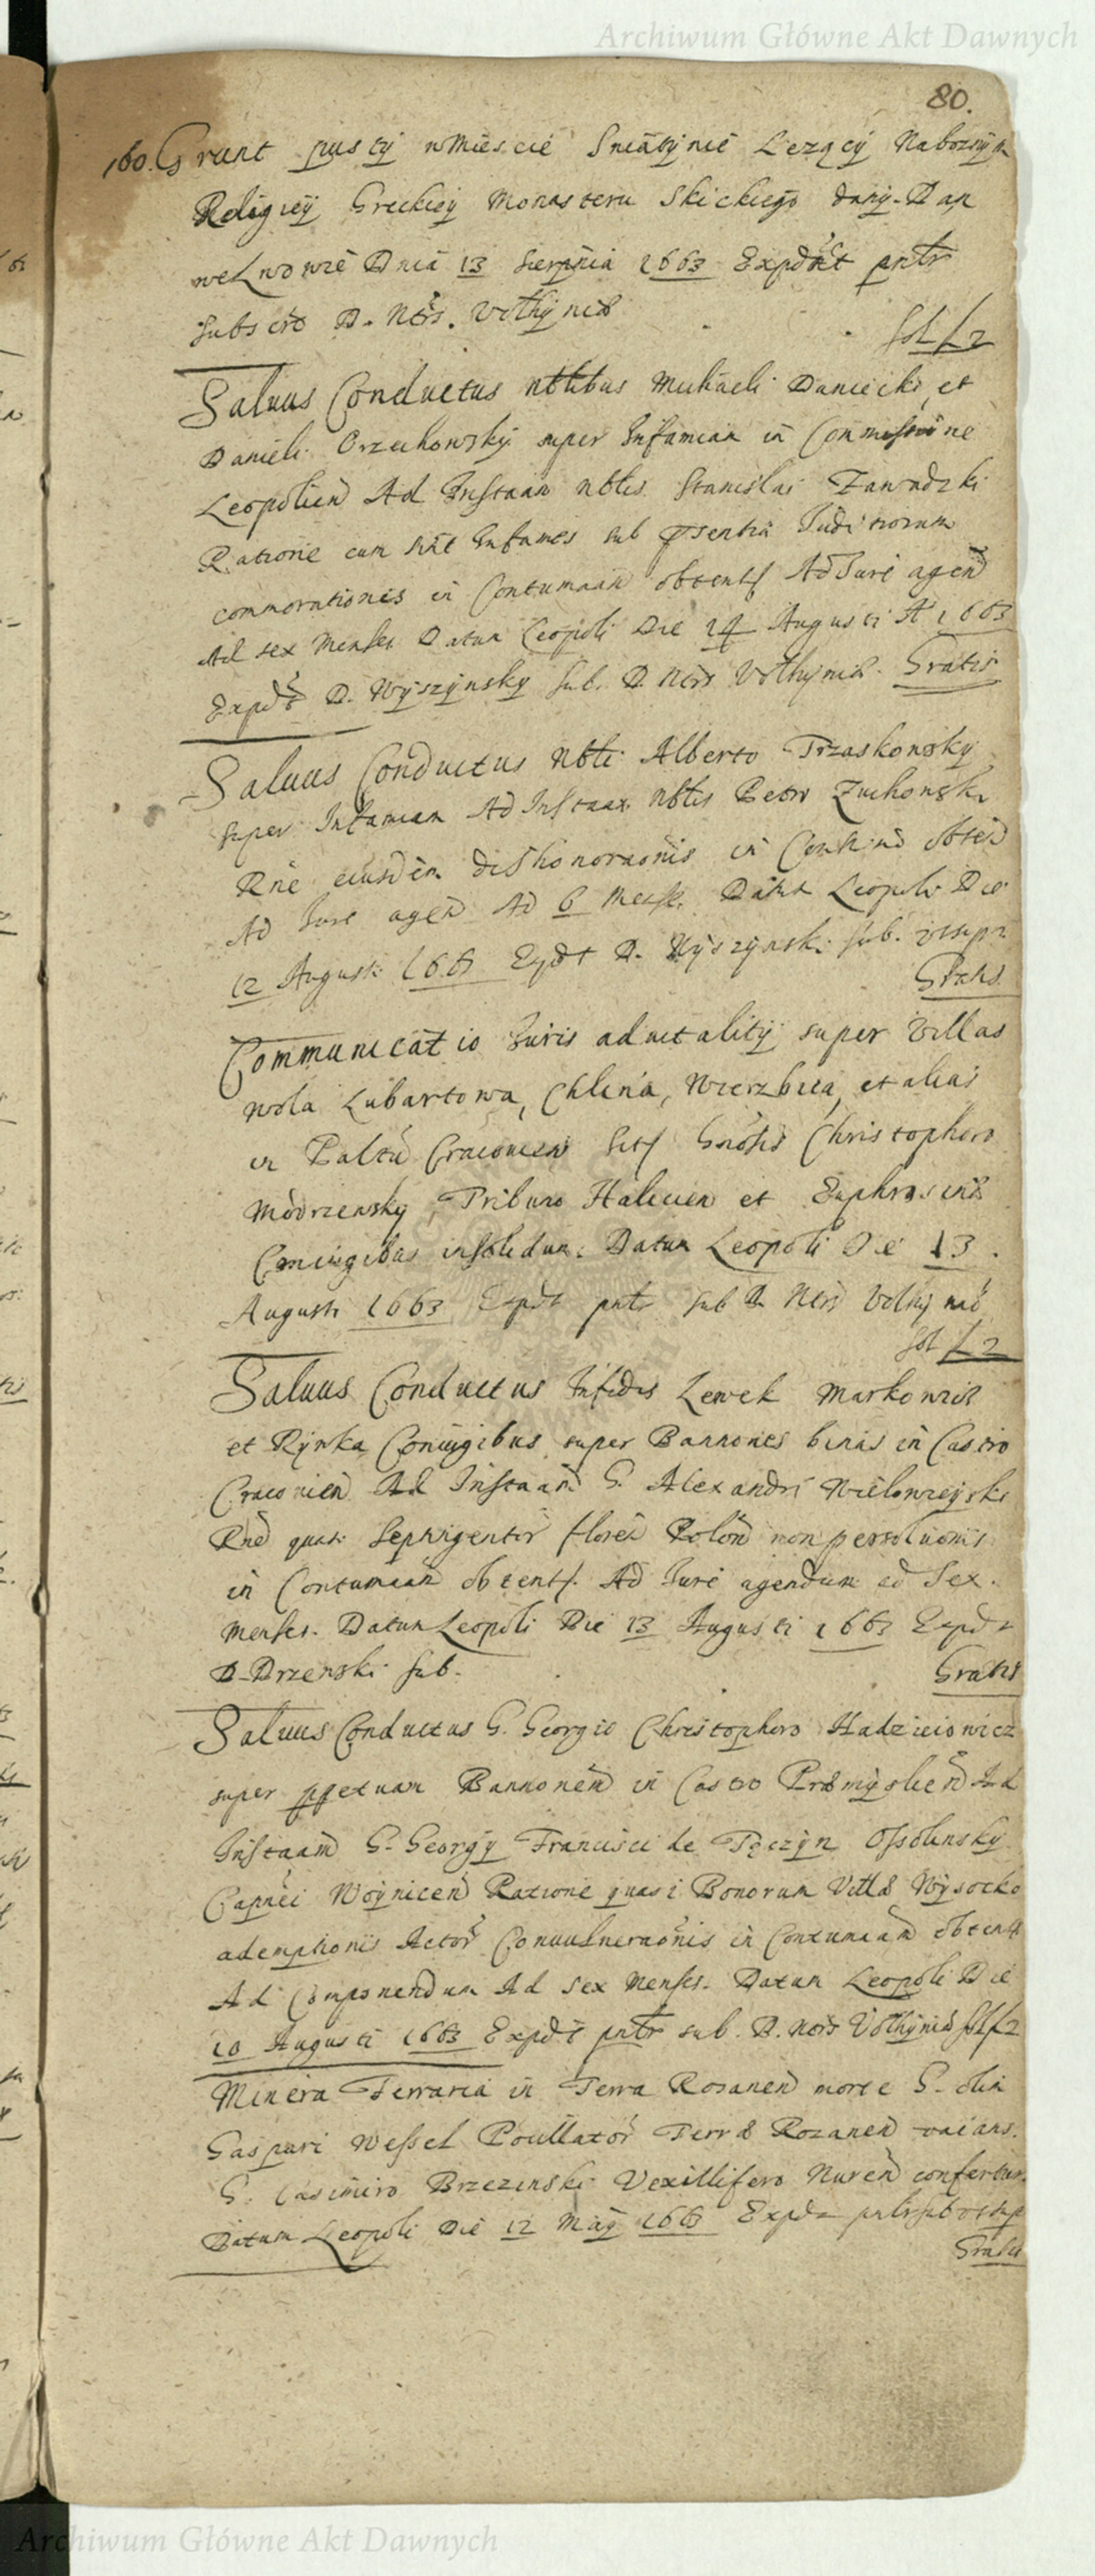 Archiwum Główne Akt Dawnych
80.
160. Grunt pusty w Miescie Sniatynie Lezący Nabozn
Religiey Greckiey Monasteru Skickiego dany. Dan
we Lwowie Dnia 13 Sierpnia 1663 Expdt pntr
Subscto D. Ntris. Volhyniæ
Sol f 2
Saluus Conductus nblibus Michaeli Daniecki, et
Danieli Orzechowsky super Infamiam in Commissione
Leopolien Ad Instaan nblis Stanislai Zawadzki
Ratione cum sint Infames sub psentia Juditiorum
commorationis in Contumaan obtent Ad Jure agend
Ad sex Menses Datum Leopoli Die 14 Augusti A 1663
Expdt D. Wyszynsky Sub. D. Ntris Volhyniæ. Gratis
Saluus Conductus Nbli Alberto Trzaskowsky
super Infamiam Ad Instaan Nblis Petri Zuchowski
Rne eiusdem dishonoraonis in obten
Ad Jure agen Ad 6 Mens. Datum Leopoli Die
12 Augusti 1663 Expdt D. Wyszynski Sub. vtsupr
Gratis
Communicatio Juris aduitality super Villas
Wola Lubartowa, Chlina, Wierzbica, et alias
in Paltu Cracouien Sit Gnosis Christophoro
Modrzewsky Tribuno Halicien et Euphrosinæ
Coniugibus insolidum. Datum Leopoli Die 13.
Augusti 1663 Expdt pntr sub D. Ntris Volhyniæ
Sol f 2
Saluus Conductus Infidis Lewek Markowicz
et Rynka Coniugibus super Bannones binas in Castro
Cracouien Ad Instaan G. Alexandri Wielowieyski
Rne quasi Septuigentor floren Polon non persoluonis
in Contumaan obtent. Ad Jure agendum ad Sex.
Menses. Datum Leopoli Die 13 Augusti 1663 Expdt
D. Drzewski Sub.
Gratis
Saluus Conductus G. Georgio Christophoro Hadziciowicz
super ppetuam Bannonem in Castro Præmyslien Ad
Instaam G. Georgy Francisci de Tęczyn Ossolinsky
Capnei Woynicen Ratione quasi Bonorum Villæ Wysocko
ademptionis Actor Conuulneraonis in Contumaam obtent
Ad Componendum Ad sex Menses. Datum Leopoli Die
10 Augusti 1663 Expdt pntr sub. D. Ntris Volhyniæ Sol f 2
Minera Ferraria in Terra Rozanen morte G. olim
Gaspari Wessel Pocillator Terræ Rozanen vacans.
G. Casimiro Brzezinski Vexillifero Nuren confertur.
Datum Leopoli Die 12 May 1663 Expdt pntr sub vtsup
Gratis
Archiwum Główne Akt Dawnych